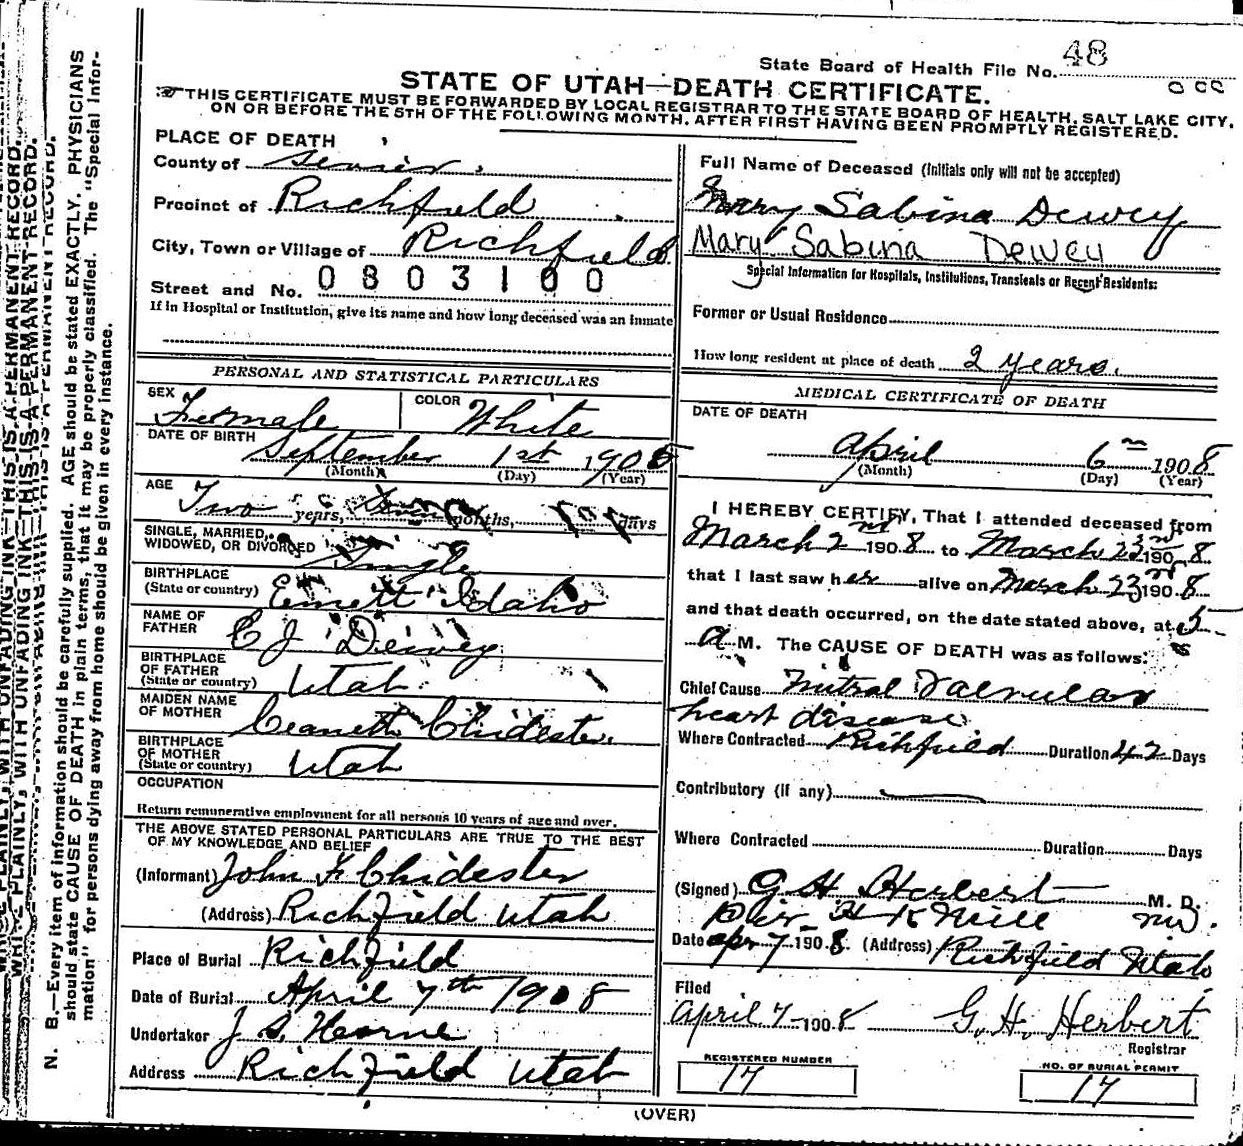 State Board of Health File No. 48
STATE OF UTAH—DEATH CERTIFICATE.
THIS CERTIFICATE MUST BE FORWARDED BY LOCAL REGISTRAR TO THE STATE BOARD OF HEALTH, SALT LAKE CITY,
ON OR BEFORE THE 5TH OF THE FOLLOWING MONTH, AFTER FIRST HAVING BEEN PROMPTLY REGISTERED.
PLACE OF DEATH
County of Sevier.
Precinct of Richfield
City, Town or Village of Richfield
Street and No. 0803100
If in Hospital or Institution, give its name and how long deceased was an inmate
PERSONAL AND STATISTICAL PARTICULARS
SEX Female COLOR White
DATE OF BIRTH September 1st 1905
(Month) (Day) (Year)
AGE Two years, months, days
SINGLE, MARRIED,
WIDOWED, OR DIVORCED Single
BIRTHPLACE
(State or country) Emett Idaho
NAME OF
FATHER C J Dewey
BIRTHPLACE
OF FATHER
(State or country) Utah
MAIDEN NAME
OF MOTHER Chidester
BIRTHPLACE
OF MOTHER
(State or country) Utah
OCCUPATION
Return remunerative employment for all persons 10 years of age and over.
THE ABOVE STATED PERSONAL PARTICULARS ARE TRUE TO THE BEST
OF MY KNOWLEDGE AND BELIEF
(Informant) John F Chidester
(Address) Richfield Utah
Place of Burial Richfield
Date of Burial April 7th 1908
Undertaker J. S. Hearne
Address Richfield Utah
Full Name of Deceased (Initials only will not be accepted)
Mary Sabina Dewey
Mary Sabina Dewey
Special Information for Hospitals, Institutions, Transients or Recent Residents:
Former or Usual Residence
How long resident at place of death 2 years.
MEDICAL CERTIFICATE OF DEATH
DATE OF DEATH
April 6 1908
(Month) (Day) (Year)
I HEREBY CERTIFY, That I attended deceased from
March 2nd 1908 to March 23rd 1908
that I last saw her alive on March 23rd 1908
and that death occurred, on the date stated above, at 5
a M. The CAUSE OF DEATH was as follows:
Chief Cause Mitral Valvular
heart disease
Where Contracted Richfield Duration 42 Days
Contributory (if any)
Where Contracted Duration Days
(Signed) G H Herbert M. D.
Neill
Date Apr 7 1908. (Address) Richfield Utah
Filed
April 7 - 1908 G. H. Herbert
Registrar
REGISTERED NUMBER
17
NO. OF BURIAL PERMIT
17
(OVER)
WRITE PLAINLY, WITH UNFADING INK—THIS IS A PERMANENT RECORD.
N. B.—Every item of information should be carefully supplied. AGE should be stated EXACTLY. PHYSICIANS
should state CAUSE OF DEATH in plain terms, that it may be properly classified. The "Special Infor-
mation" for persons dying away from home should be given in every instance.